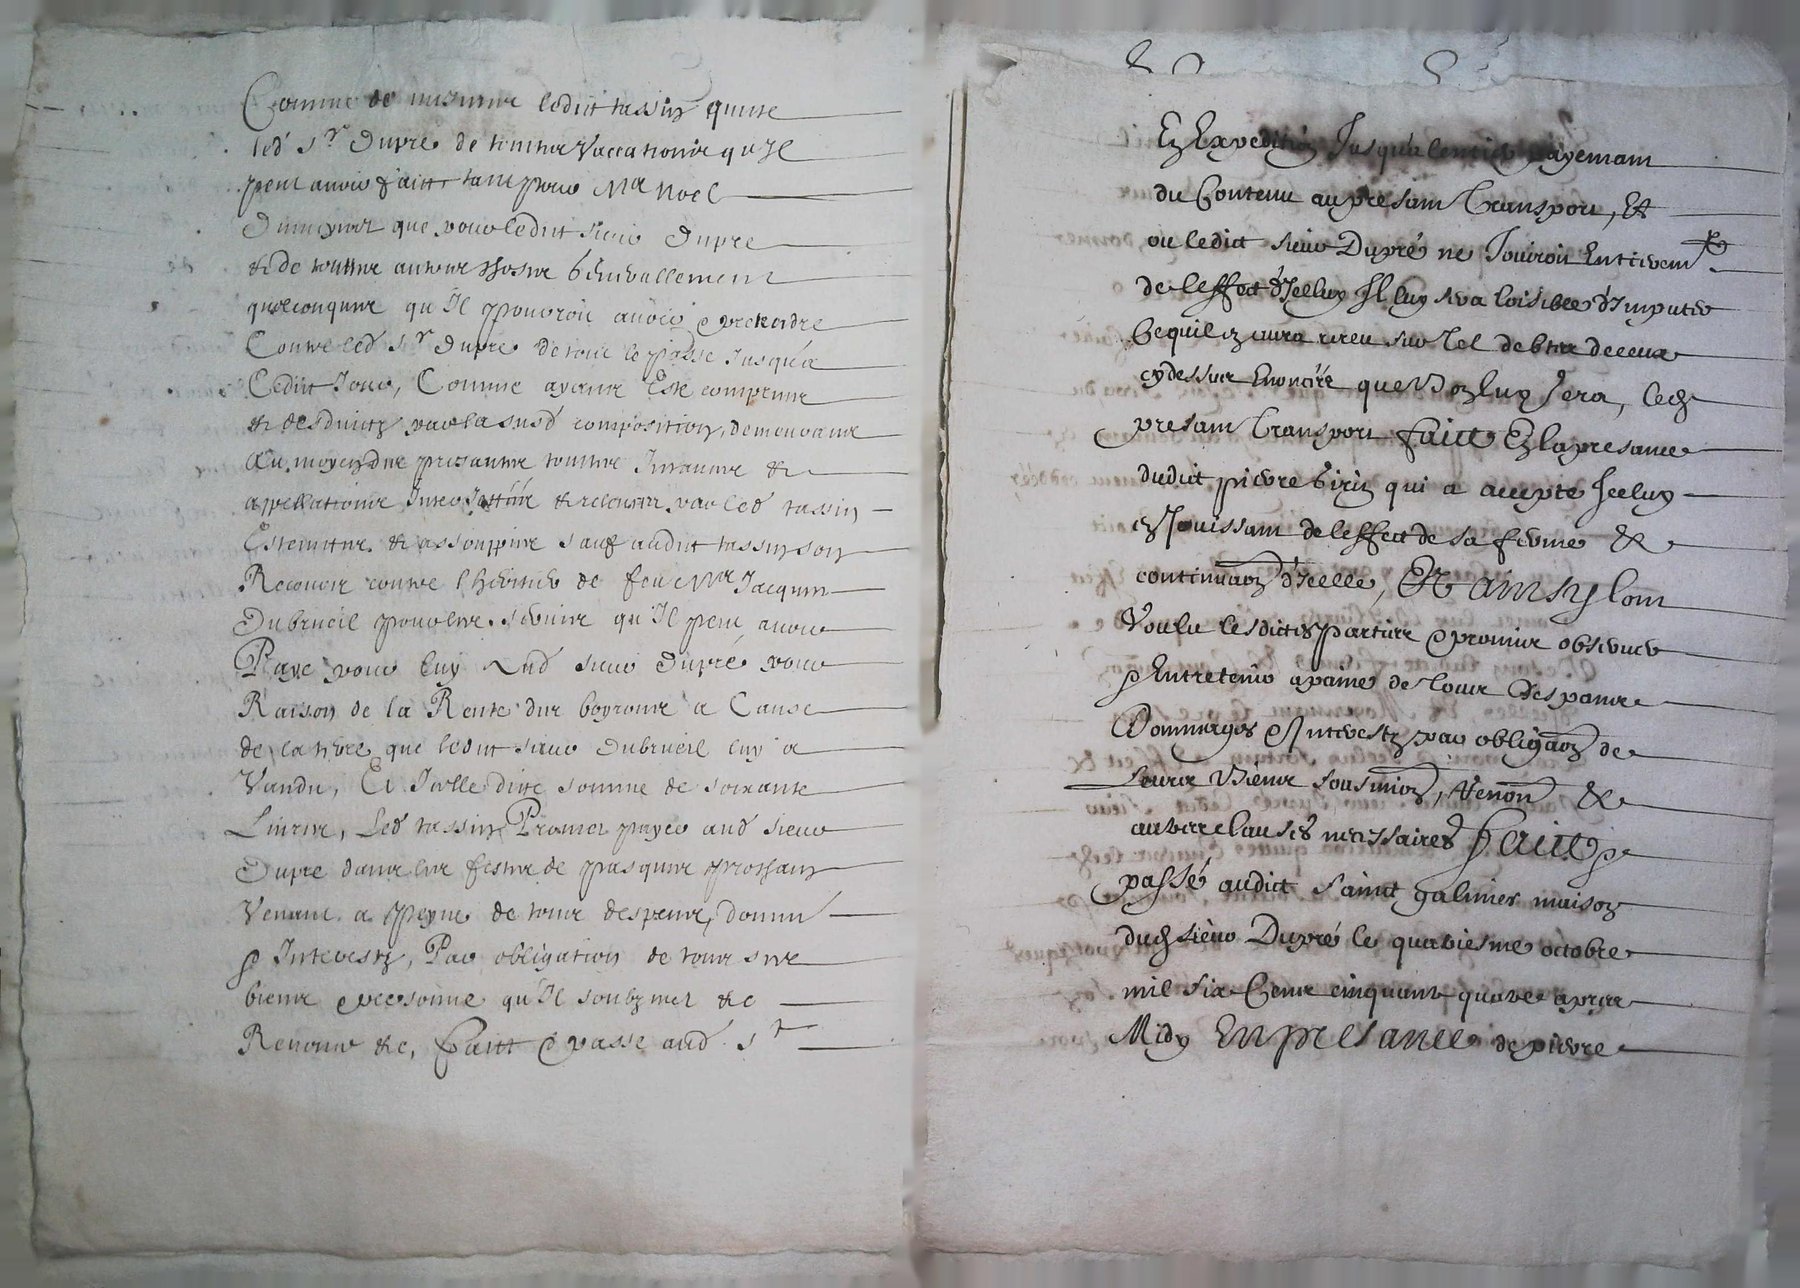 Comme de mesme ledict tassin quitte
led Sr Dupré de touttes vaccations qu'Il
peut avoir faict tant pour Mre Noel
que pour ledict sieur Dupre
& de touttes autres choses Generallement
quelconques qu'Il pouvroit avoir & pretendre
Contre led Sr Dupre de tout le passe Jusqu'a
Cedict Jour, Comme ayant Esté comprins
& desduictz par la susd composition, demeurant
au moyen des presantes touttes Instances &
appellations & relevees par led tassin
Esteinctes & assouppies sauf audict tassin son
Recours contre l'heritier de feu Mre Jacques
Dubrueil pour les servis qu'Il peut avoir
Paye pour luy aud sieur Dupré pour
Raison de la Rente des a Cause
de la terre que ledict sieur Dubrueil luy a
Vandu, Et Icelle dicte somme de soixante
Livres, Led tassin Promet payer aud sieur
Dupre dans les festes de pasques prochain
Venant a peyne de tous despens, domm
& Interestz, Par obligation de tous ses
biens & personne qu'Il soubzmet &c
Renonce &c, faict & passe aud St
En Expedition Jusqu'a lentier payemant
du Contenu au presant Transport, Et
ou ledict sieur Dupré ne Jouiroit Entierem
de leffect d'Icelluy Il luy sera loisible d'Imputer
Ce quil en aura receu sur tel debtes de ceux
cy dessus Enoncés que Bon luy sera, led
presant Transport faict En la presance
dudict pierre Girin qui a accepte Icelluy
en Jouissant de leffect de sa ferme &
continuaon d'Icelle, Et ainsy lont
Voulu lesdictes parties & promis observer
& Entretenir a paine de tous despans
Dommages & Interestz par obligaon de
leurs Biens sousmion, Renon &
autres clauses necessaires faict &
passé audict Sainct galmier maison
dud sieur Dupré le quatriesme octobre
mil six Cens cinquante quatre apres
Midy En presance de pierre